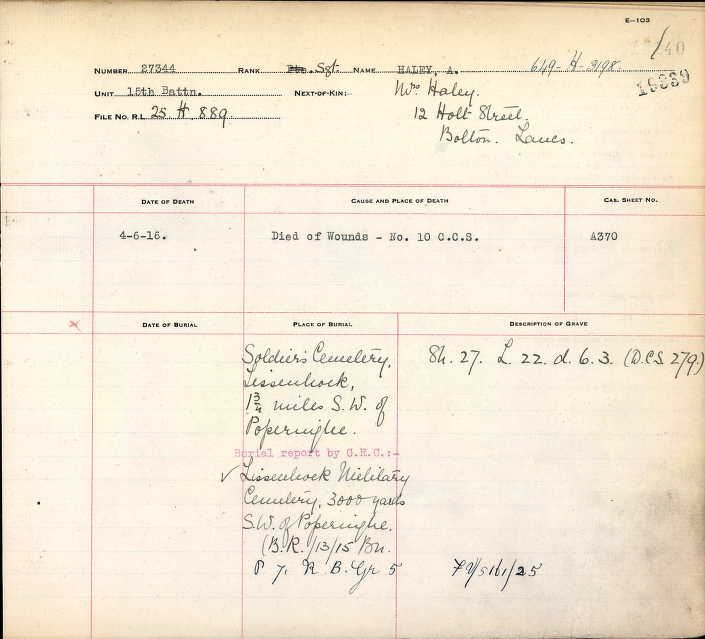 E-103
40
NUMBER 27344 RANK Sgt. NAME HALEY, A. 649-H-3198.
19339
UNIT 15th Battn. NEXT-OF-KIN: Mrs Haley.
FILE NO. R.L. 25 H. 889. 12 Holt Street.
Bolton. Lancs.
DATE OF DEATH CAUSE AND PLACE OF DEATH CAS. SHEET NO.
4-6-16. Died of Wounds - No. 10 C.C.S. A370
DATE OF BURIAL PLACE OF BURIAL DESCRIPTION OF GRAVE
Soldiers Cemetery, Sh. 27. L. 22. d. 6. 3. (D.C.S. 279)
Lissenhoek,
1 3/4 miles S.W. of
Poperinghe.
Burial report by G.R.C.:-
✓ Lissenhoek Military
Cemetery, 3000 yards
S.W. of Poperinghe.
(B.R./13/15 Bn.
P 7. R. B. Gr 5